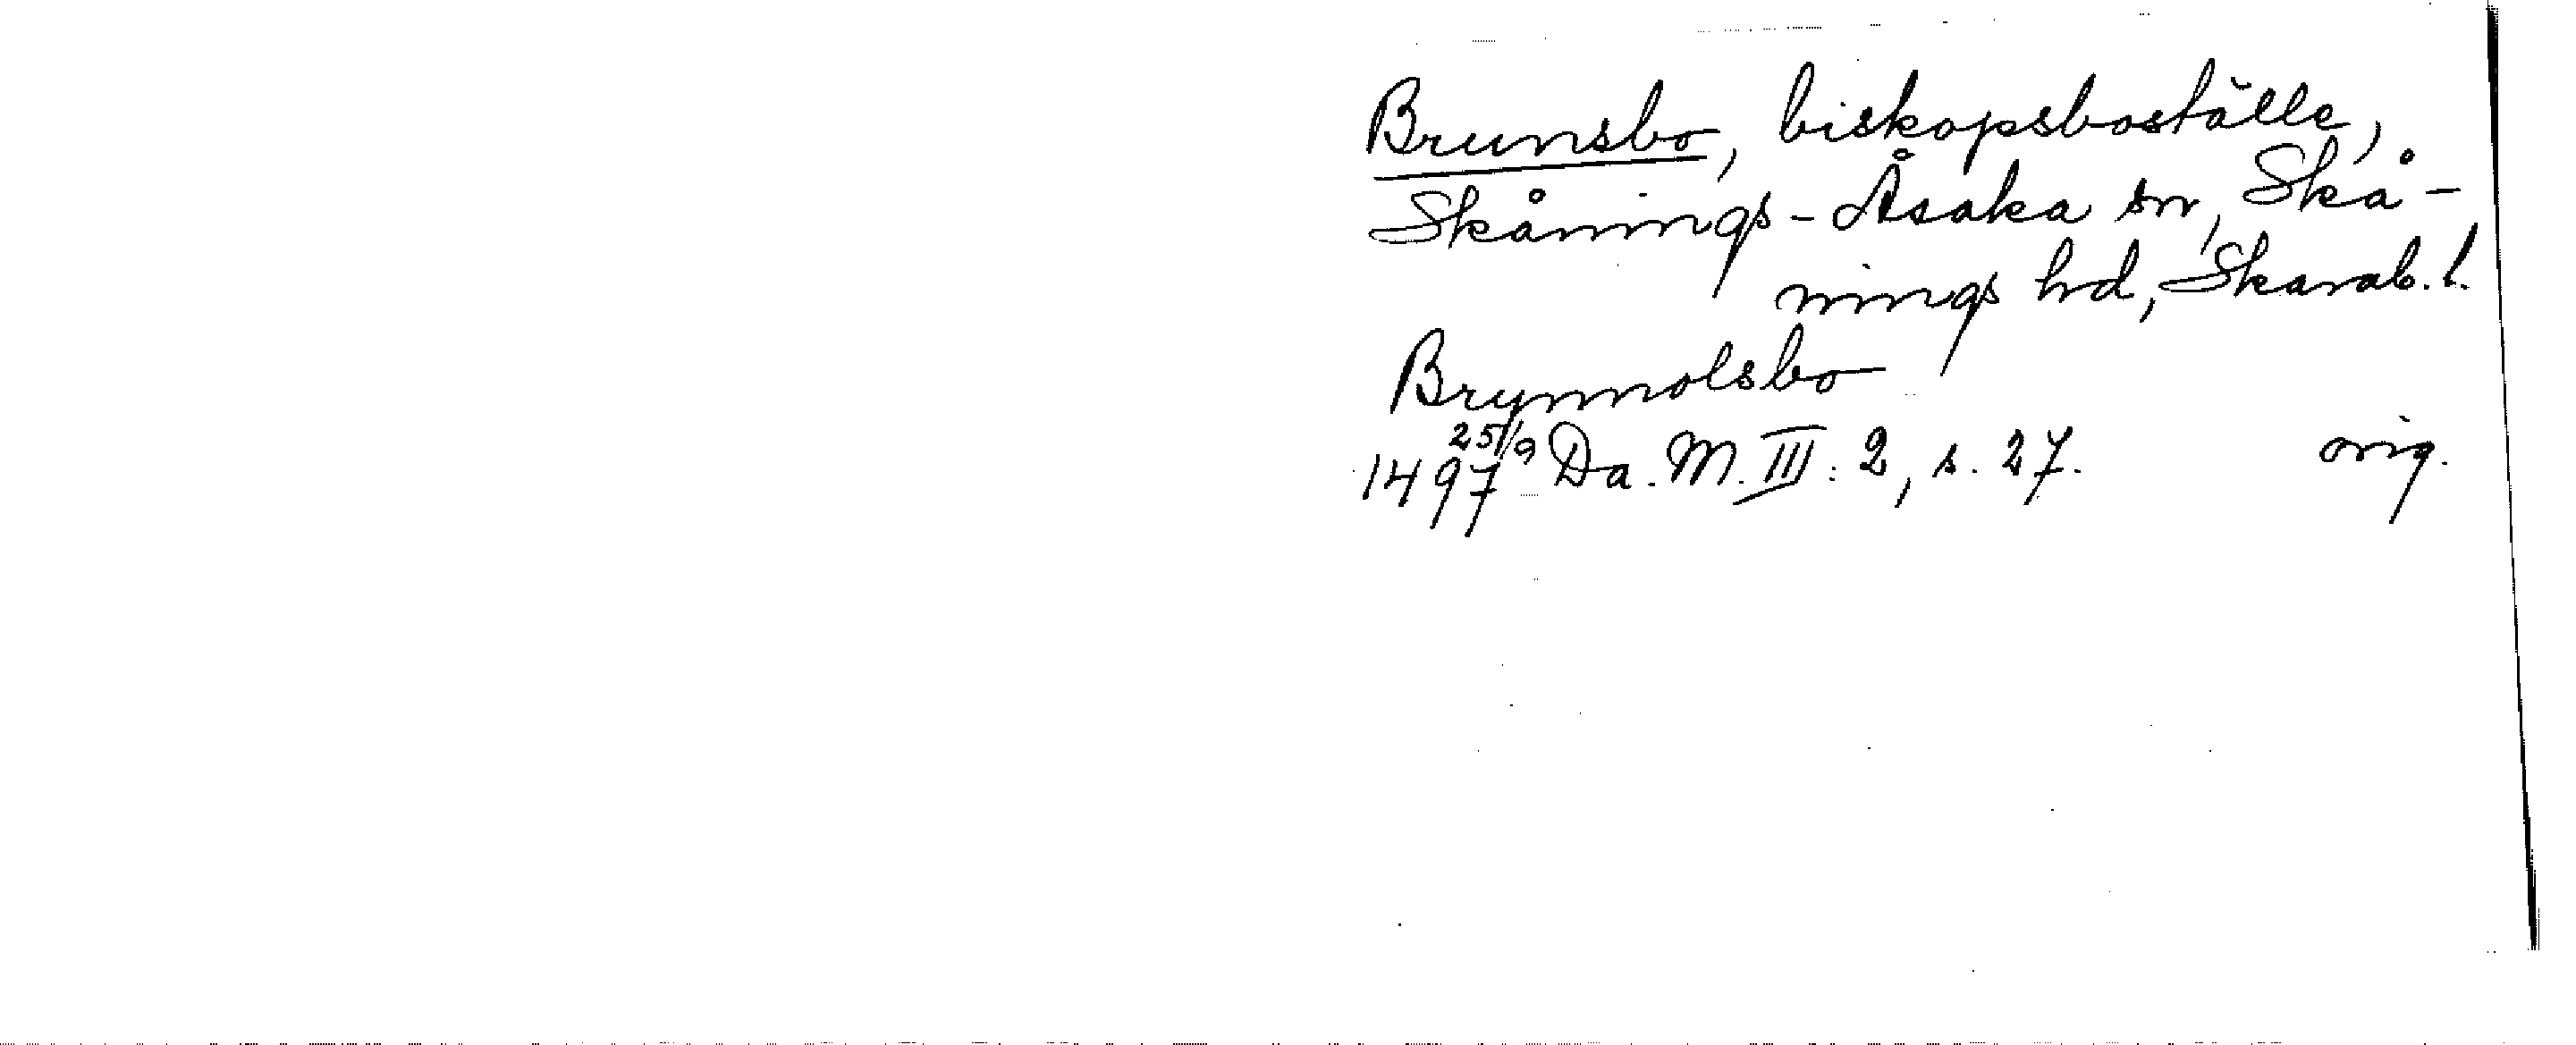 Brunsbo, biskopsboställe,
Skånings-Åsaka sn, Skå-
nings hd, Skarab. l.
Brynnolsbo
1497 25/9 Da. M. III: 2, s. 27. orig.